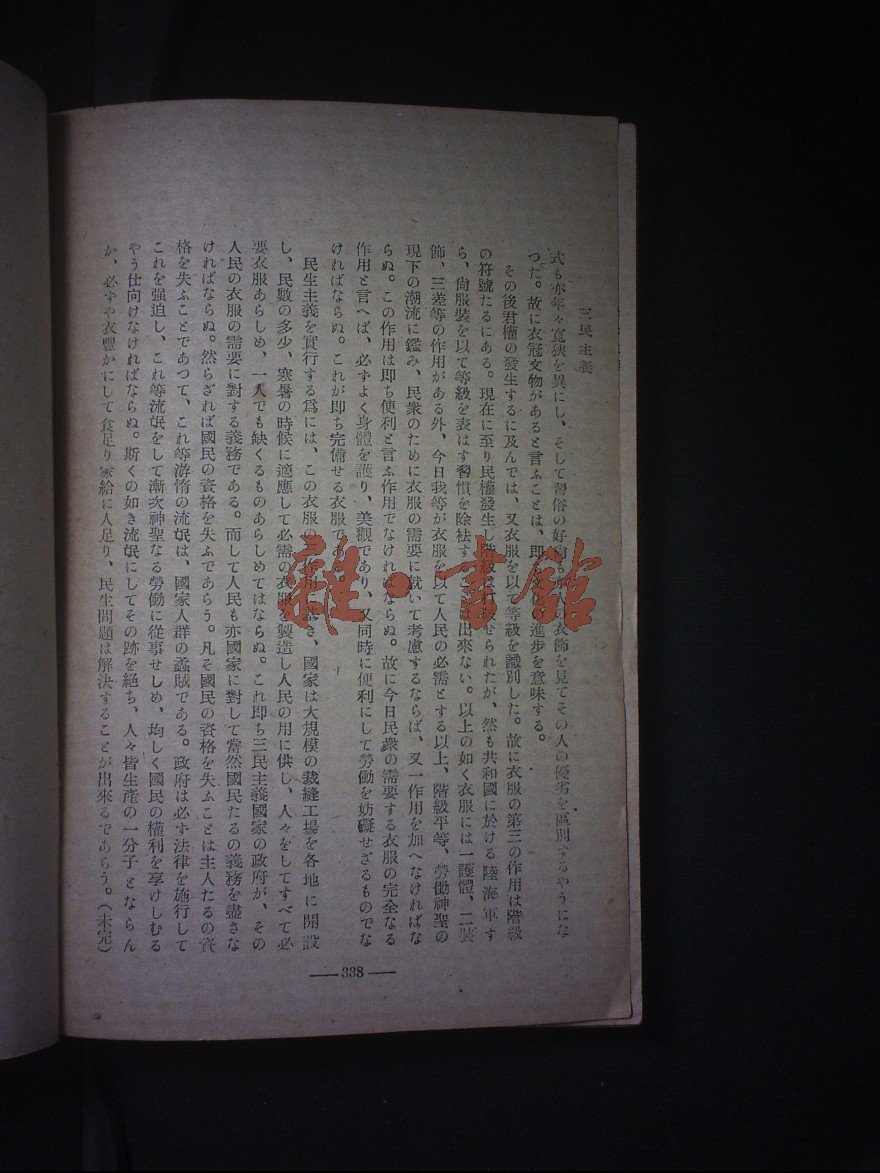 三民主義
式も亦年々寬狹を異にし、そして習俗の好尙も亦人の衣飾を見てその人の優劣を區別するやうにな
つた。故に衣冠文物があると言ふことは、即ち文化の進步を意味する。
その後君權の發生するに及んでは、又衣服を以て等級を識別した。故に衣服の第三の作用は階級
の符號たるにある。現在に至り民權發生し階級は打破せられたが、然も共和國に於ける陸海軍す
ら、尙服裝を以て等級を表はす習慣を除袪す は出來ない。以上の如く衣服には一護體、二裝
飾、三差等の作用がある外、今日我等が衣服を以て人民の必需とする以上、階級平等、勞働神聖の
現下の潮流に鑑み、民衆のために衣服の需要に就いて考慮するならば、又一作用を加へなければな
らぬ。この作用は即ち便利と言ふ作用でなければならぬ。故に今日民衆の需要する衣服の完全なる
作用と言へば、必ずよく身體を護り、美觀であり、又同時に便利にして勞働を妨礙せざるものでな
ければならぬ。これが即ち完備せる衣服である。
民生主義を實行する爲には、この衣服の三作用に基き、國家は大規模の裁縫工場を各地に開設
し、民數の多少、寒暑の時候に適應して必需の衣服を製造し人民の用に供し、人々をしてすべて必
要衣服あらしめ、一人でも缺くるものあらしめてはならぬ。これ即ち三民主義國家の政府が、その
人民の衣服の需要に對する義務である。而して人民も亦國家に對して當然國民たるの義務を盡さな
ければならぬ。然らざれば國民の資格を失ふであらう。凡そ國民の資格を失ふことは主人たるの資
格を失ふことであつて、これ等游惰の流氓は、國家人群の蟊賊である。政府は必ず法律を施行して
これを强迫し、これ等流氓をして漸次神聖なる勞働に從事せしめ、均しく國民の權利を享けしむる
やう仕向けなければならぬ。斯くの如き流氓にしてその跡を絕ち、人々皆生產の一分子とならん
か、必ずや衣豐かにして食足り家給に人足り、民生問題は解決することが出來るであらう。（未完）
338
雜·書館